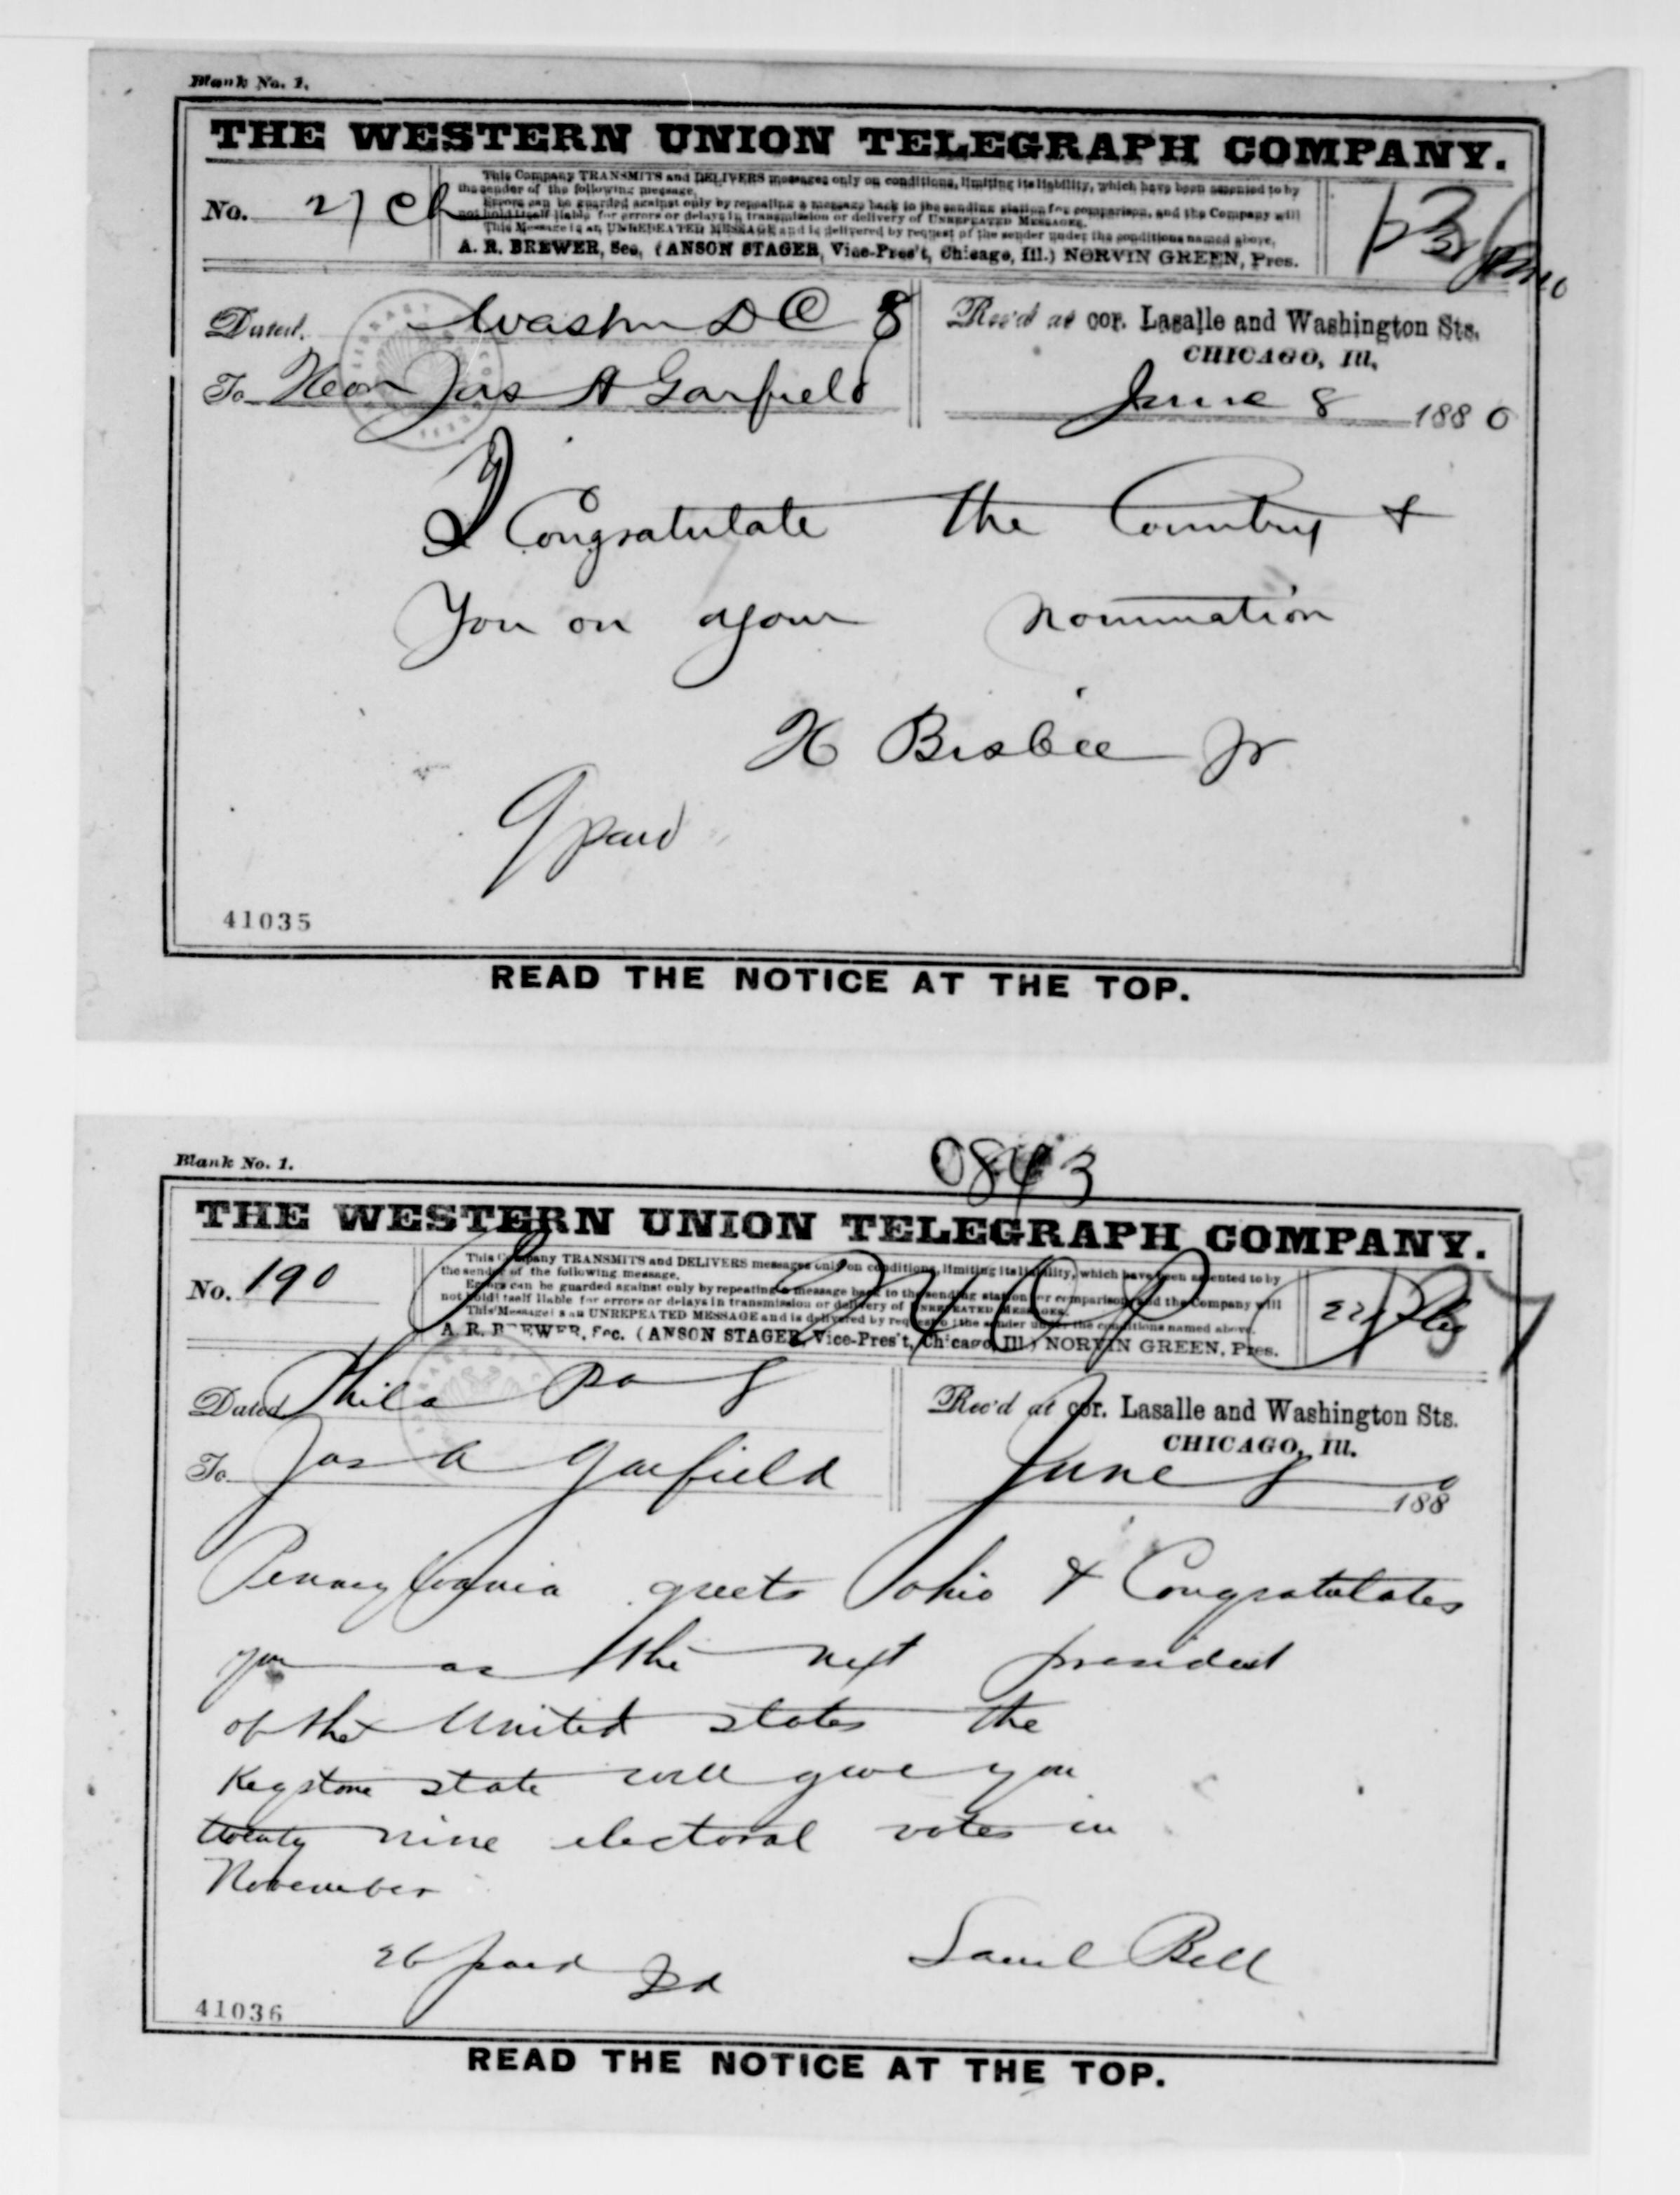 Blank No. 1.
THE WESTERN UNION TELEGRAPH COMPANY.
This Company TRANSMITS and DELIVERS messages only on conditions, limiting its liability, which have been assented to by
the sender of the following message.
Errors can be guarded against only by repeating a message back to the sending station for comparison, and the Company will
not hold itself liable for errors or delays in transmission or delivery of UNREPEATED MESSAGES.
This Message is an UNREPEATED MESSAGE and is delivered by request of the sender under the conditions named above.
No. 21 Ch
A. R. BREWER, Sec. (ANSON STAGER, Vice-Pres't, Chicago, Ill.) NORVIN GREEN, Pres.
Dated Washn D C 8
Rec'd at cor. Lasalle and Washington Sts.
CHICAGO, Ill.
To Hon Jas A Garfield
June 8 1880
I Congratulate the Country &
You on your nomination
H Bisbee Jr
9 paid
41035
READ THE NOTICE AT THE TOP.
0843
Blank No. 1.
THE WESTERN UNION TELEGRAPH COMPANY.
This Company TRANSMITS and DELIVERS messages only on conditions, limiting its liability, which have been assented to by
the sender of the following message.
Errors can be guarded against only by repeating a message back to the sending station for comparison, and the Company will
not hold itself liable for errors or delays in transmission or delivery of UNREPEATED MESSAGES.
This Message is an UNREPEATED MESSAGE and is delivered by request of the sender under the conditions named above.
No. 190
A. R. BREWER, Sec. (ANSON STAGER, Vice-Pres't, Chicago, Ill.) NORVIN GREEN, Pres.
Dated Phila Pa 8
Rec'd at cor. Lasalle and Washington Sts.
CHICAGO, Ill.
To Jas A Garfield
June 8 1880
Pennsylvania greets Ohio & Congratulates
you as the next president
of the United states the
Keystone state will give you
twenty nine electoral votes in
November
Saml Bell
26 paid
41036
READ THE NOTICE AT THE TOP.